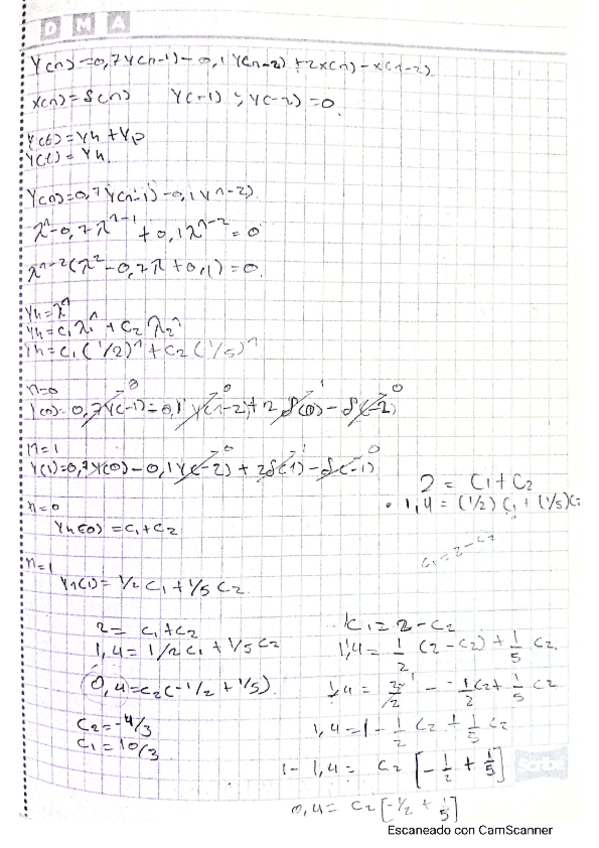 D M A
Y(n)=0,7Y(n-1)-0,1Y(n-2)+2x(n)-x(n-2)
x(n)=δ(n) Y(-1) ; Y(-2)=0.
Y(t)=Yh+Yp
Y(t)=Yh.
Y(n)=0,7Y(n-1)-0,1Y(n-2)
λ^n-0,7λ^n-1+0,1λ^n-2=0
λ^n-2(λ^2-0,7λ+0,1)=0.
Yh=λ^n
Yh=C1λ1^n+C2λ2^n
Yh=C1(1/2)^n+C2(1/5)^n
n=0
Y(0)=0,7Y(-1)-0,1Y(-2)+2δ(0)-δ(-2)
n=1
Y(1)=0,7Y(0)-0,1Y(-2)+2δ(1)-δ(-1)
2=C1+C2
1,4=(1/2)C1+(1/5)C2
n=0
Yh(0)=C1+C2
C1=2-C2
n=1
Yh(1)=1/2C1+1/5C2
2=C1+C2
1,4=1/2C1+1/5C2
0,4=C2(-1/2+1/5)
C2=-4/3
C1=10/3
C1=2-C2
1,4=1/2(2-C2)+1/5C2.
1,4=2/2-1/2C2+1/5C2
1,4=1-1/2C2+1/5C2
1-1,4=C2[-1/2+1/5]
Scribe
0,4=C2[-1/2+1/5]
Escaneado con CamScanner